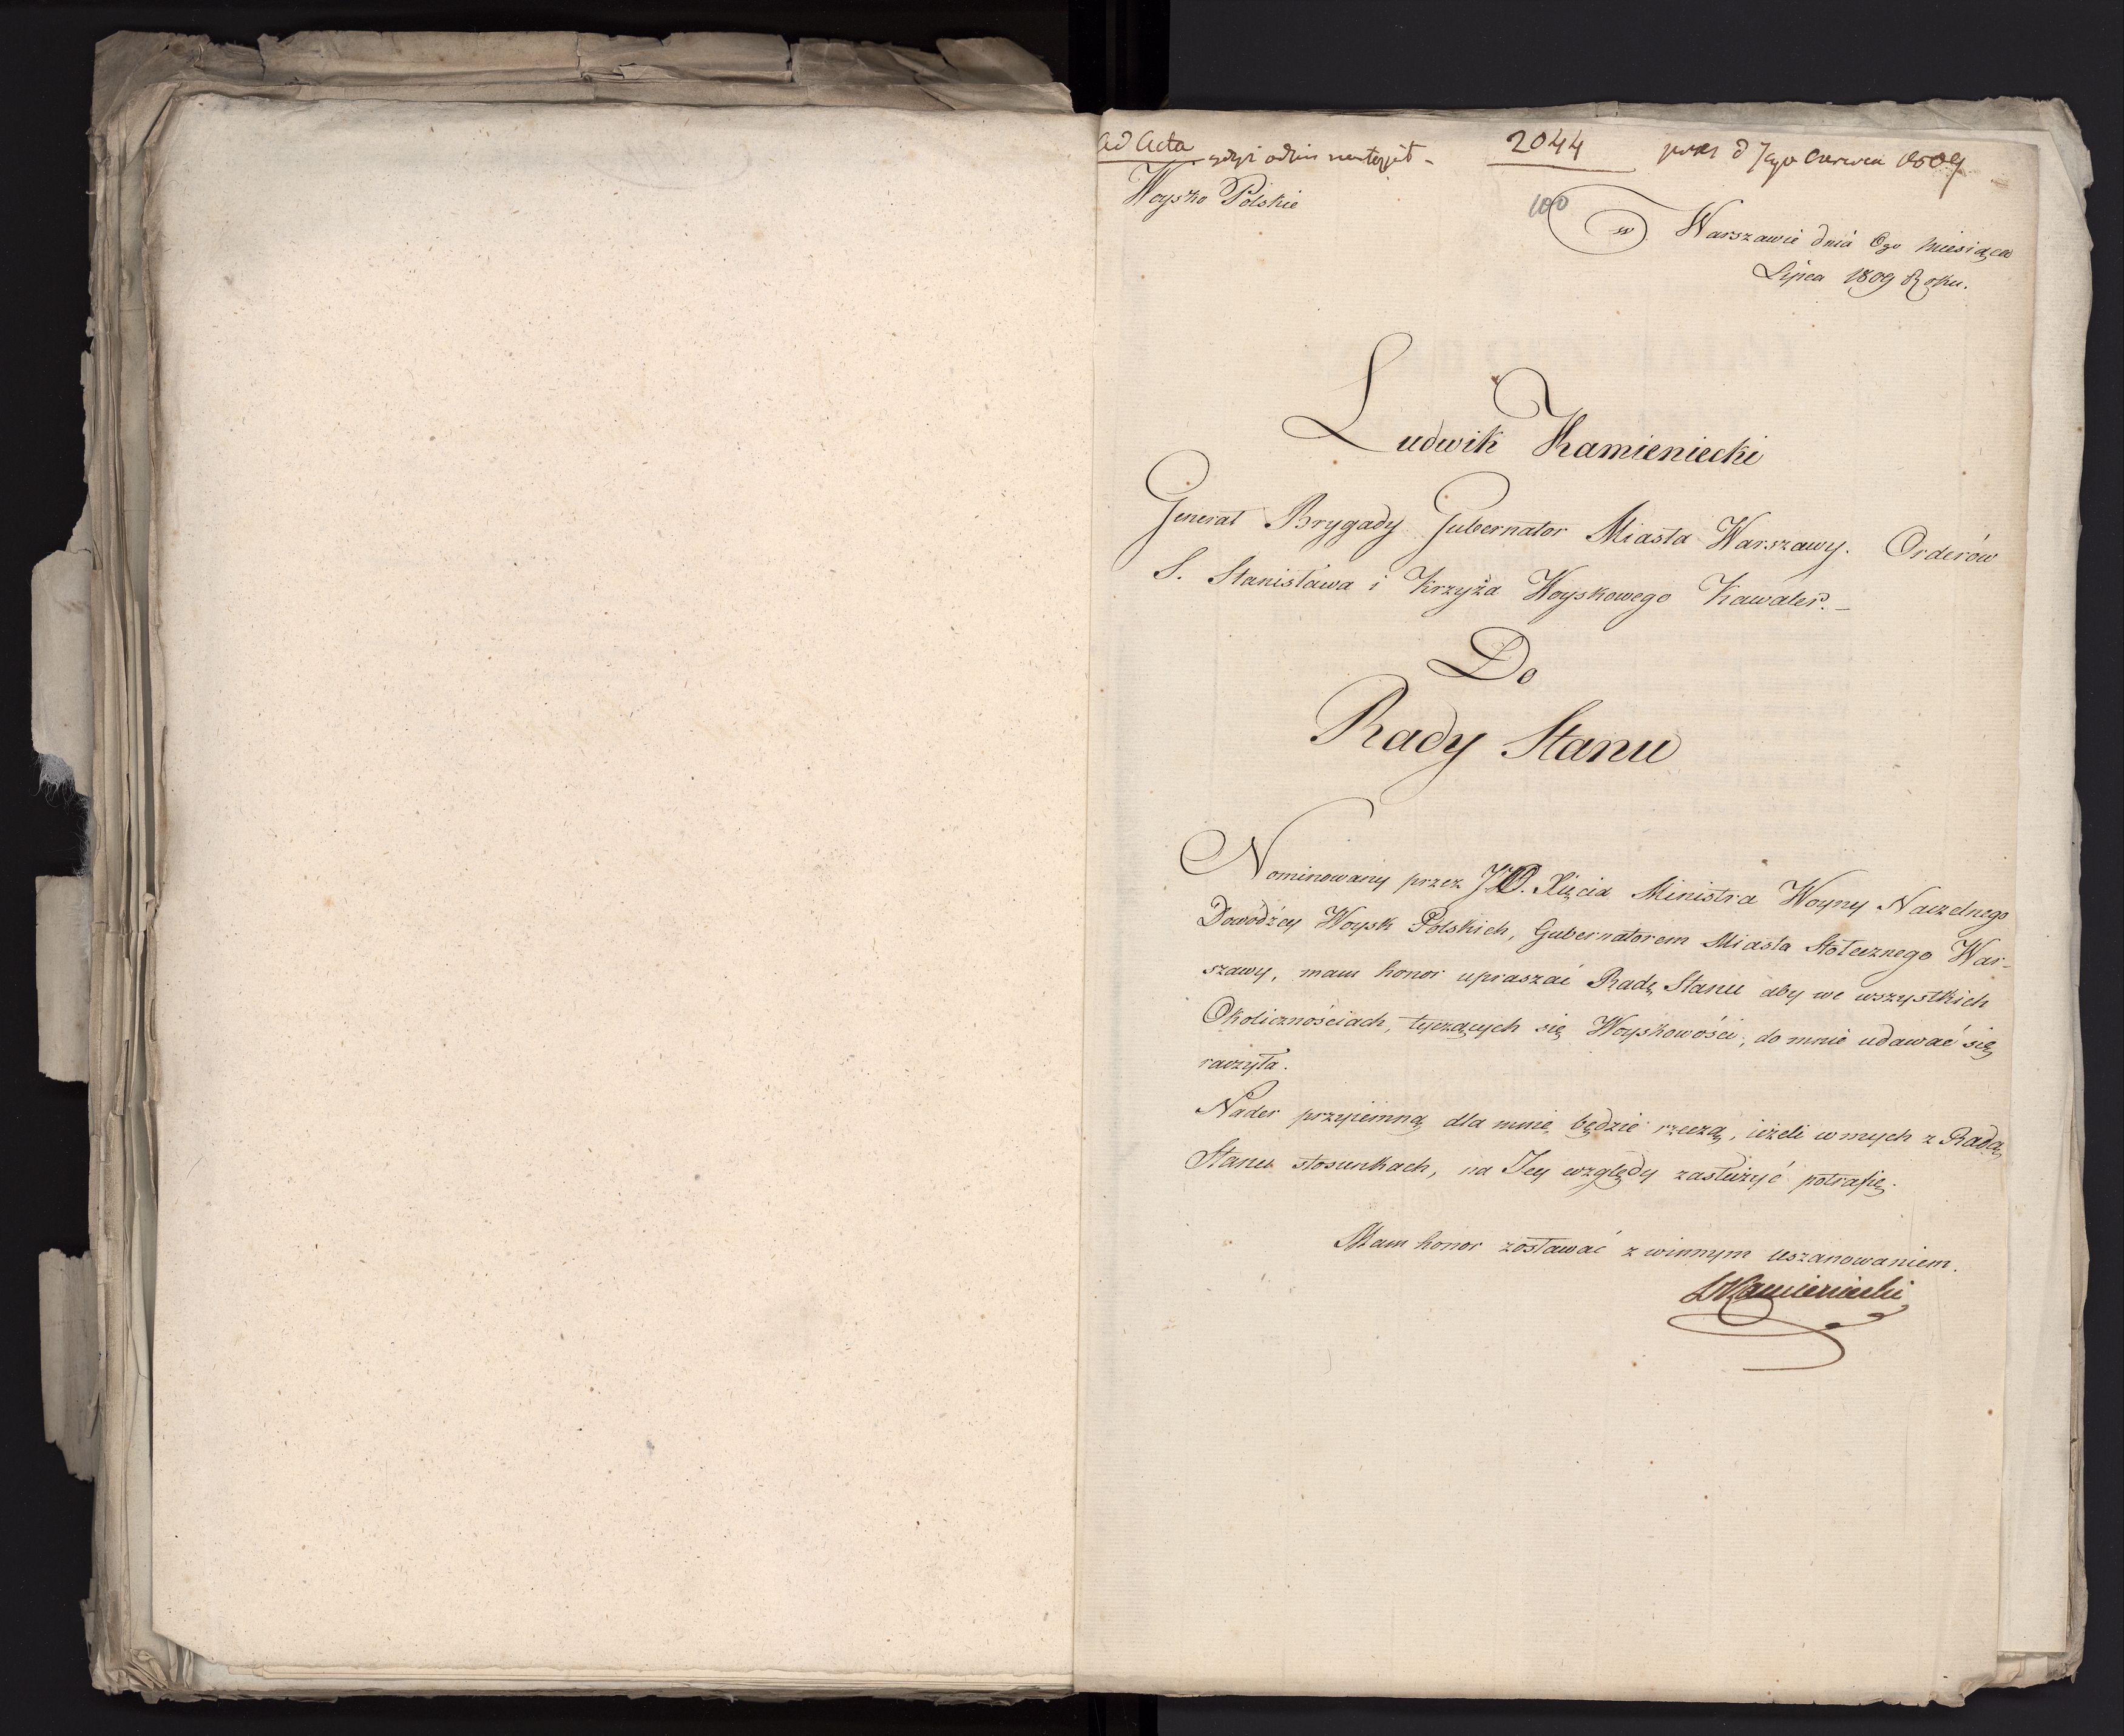 ad acta
2044
d 7go Czerwca 1809
Woysko Polskie
100
w Warszawie dnia 6go Miesiąca
Lipca 1809 Roku.
Ludwik Kamieniecki
Generał Brygady Gubernator Miasta Warszawy. Orderów
S. Stanisława i Krzyża Woyskowego Kawaler. –
Do
Rady Stanu
Nominowany przez JO. Xięcia Ministra Woyny Naczelnego
Dowódzcy Woysk Polskich, Gubernatorem Miasta Stołecznego War-
szawy, mam honor upraszać Radę Stanu aby we wszystkich
Okolicznościach, tyczących się Woyskowości, do mnie udawać się
raczyła.
Nader przyiemną dla mnie będzie rzeczą, ieżeli w mych z Radą
Stanu stosunkach, na Jey względy zasłużyć potrafię.
Mam honor zostawać z winnym uszanowaniem.
LKamieniecki